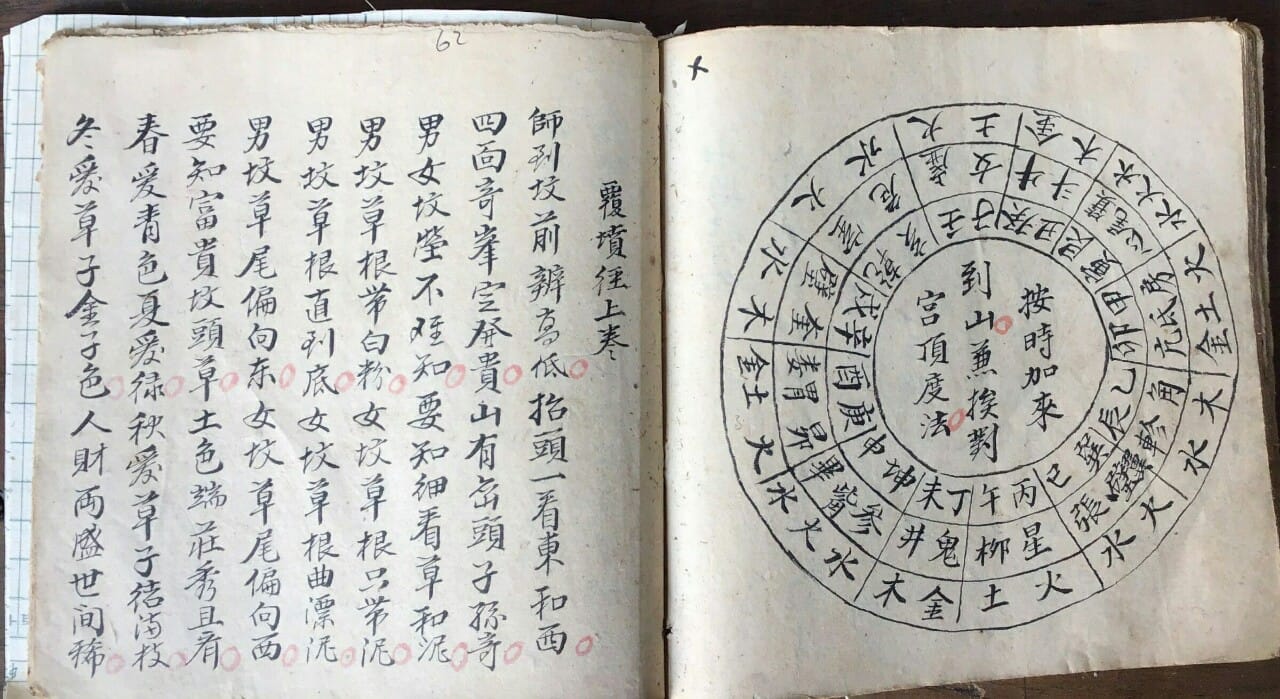 按時加來
到山兼挨對
宮頂度法
子癸丑艮寅甲卯乙辰巽巳丙午丁未坤申庚酉辛戌乾亥壬
女牛斗箕尾心房氐亢角軫翼張星柳鬼井參觜畢昴胃婁奎壁室危虛
土金木水火水火土金木水火水火土金木水火水火土金木水火水火
62
覆墳徑上卷
師到坟前辨高低抬頭一看東和西
四面奇峯定発貴山有峦頭子孫奇
男女坟瑩不难知要知細看草和泥
男坟草根带白粉女坟草根只带泥
男坟草根直到底女坟草根曲漂泥
男坟草尾偏向东女坟草尾偏向西
要知富貴坟頭草土色端莊秀且有
春爱青色夏爱绿秋爱草子结满枝
冬爱草子金子色人財两盛世间稀